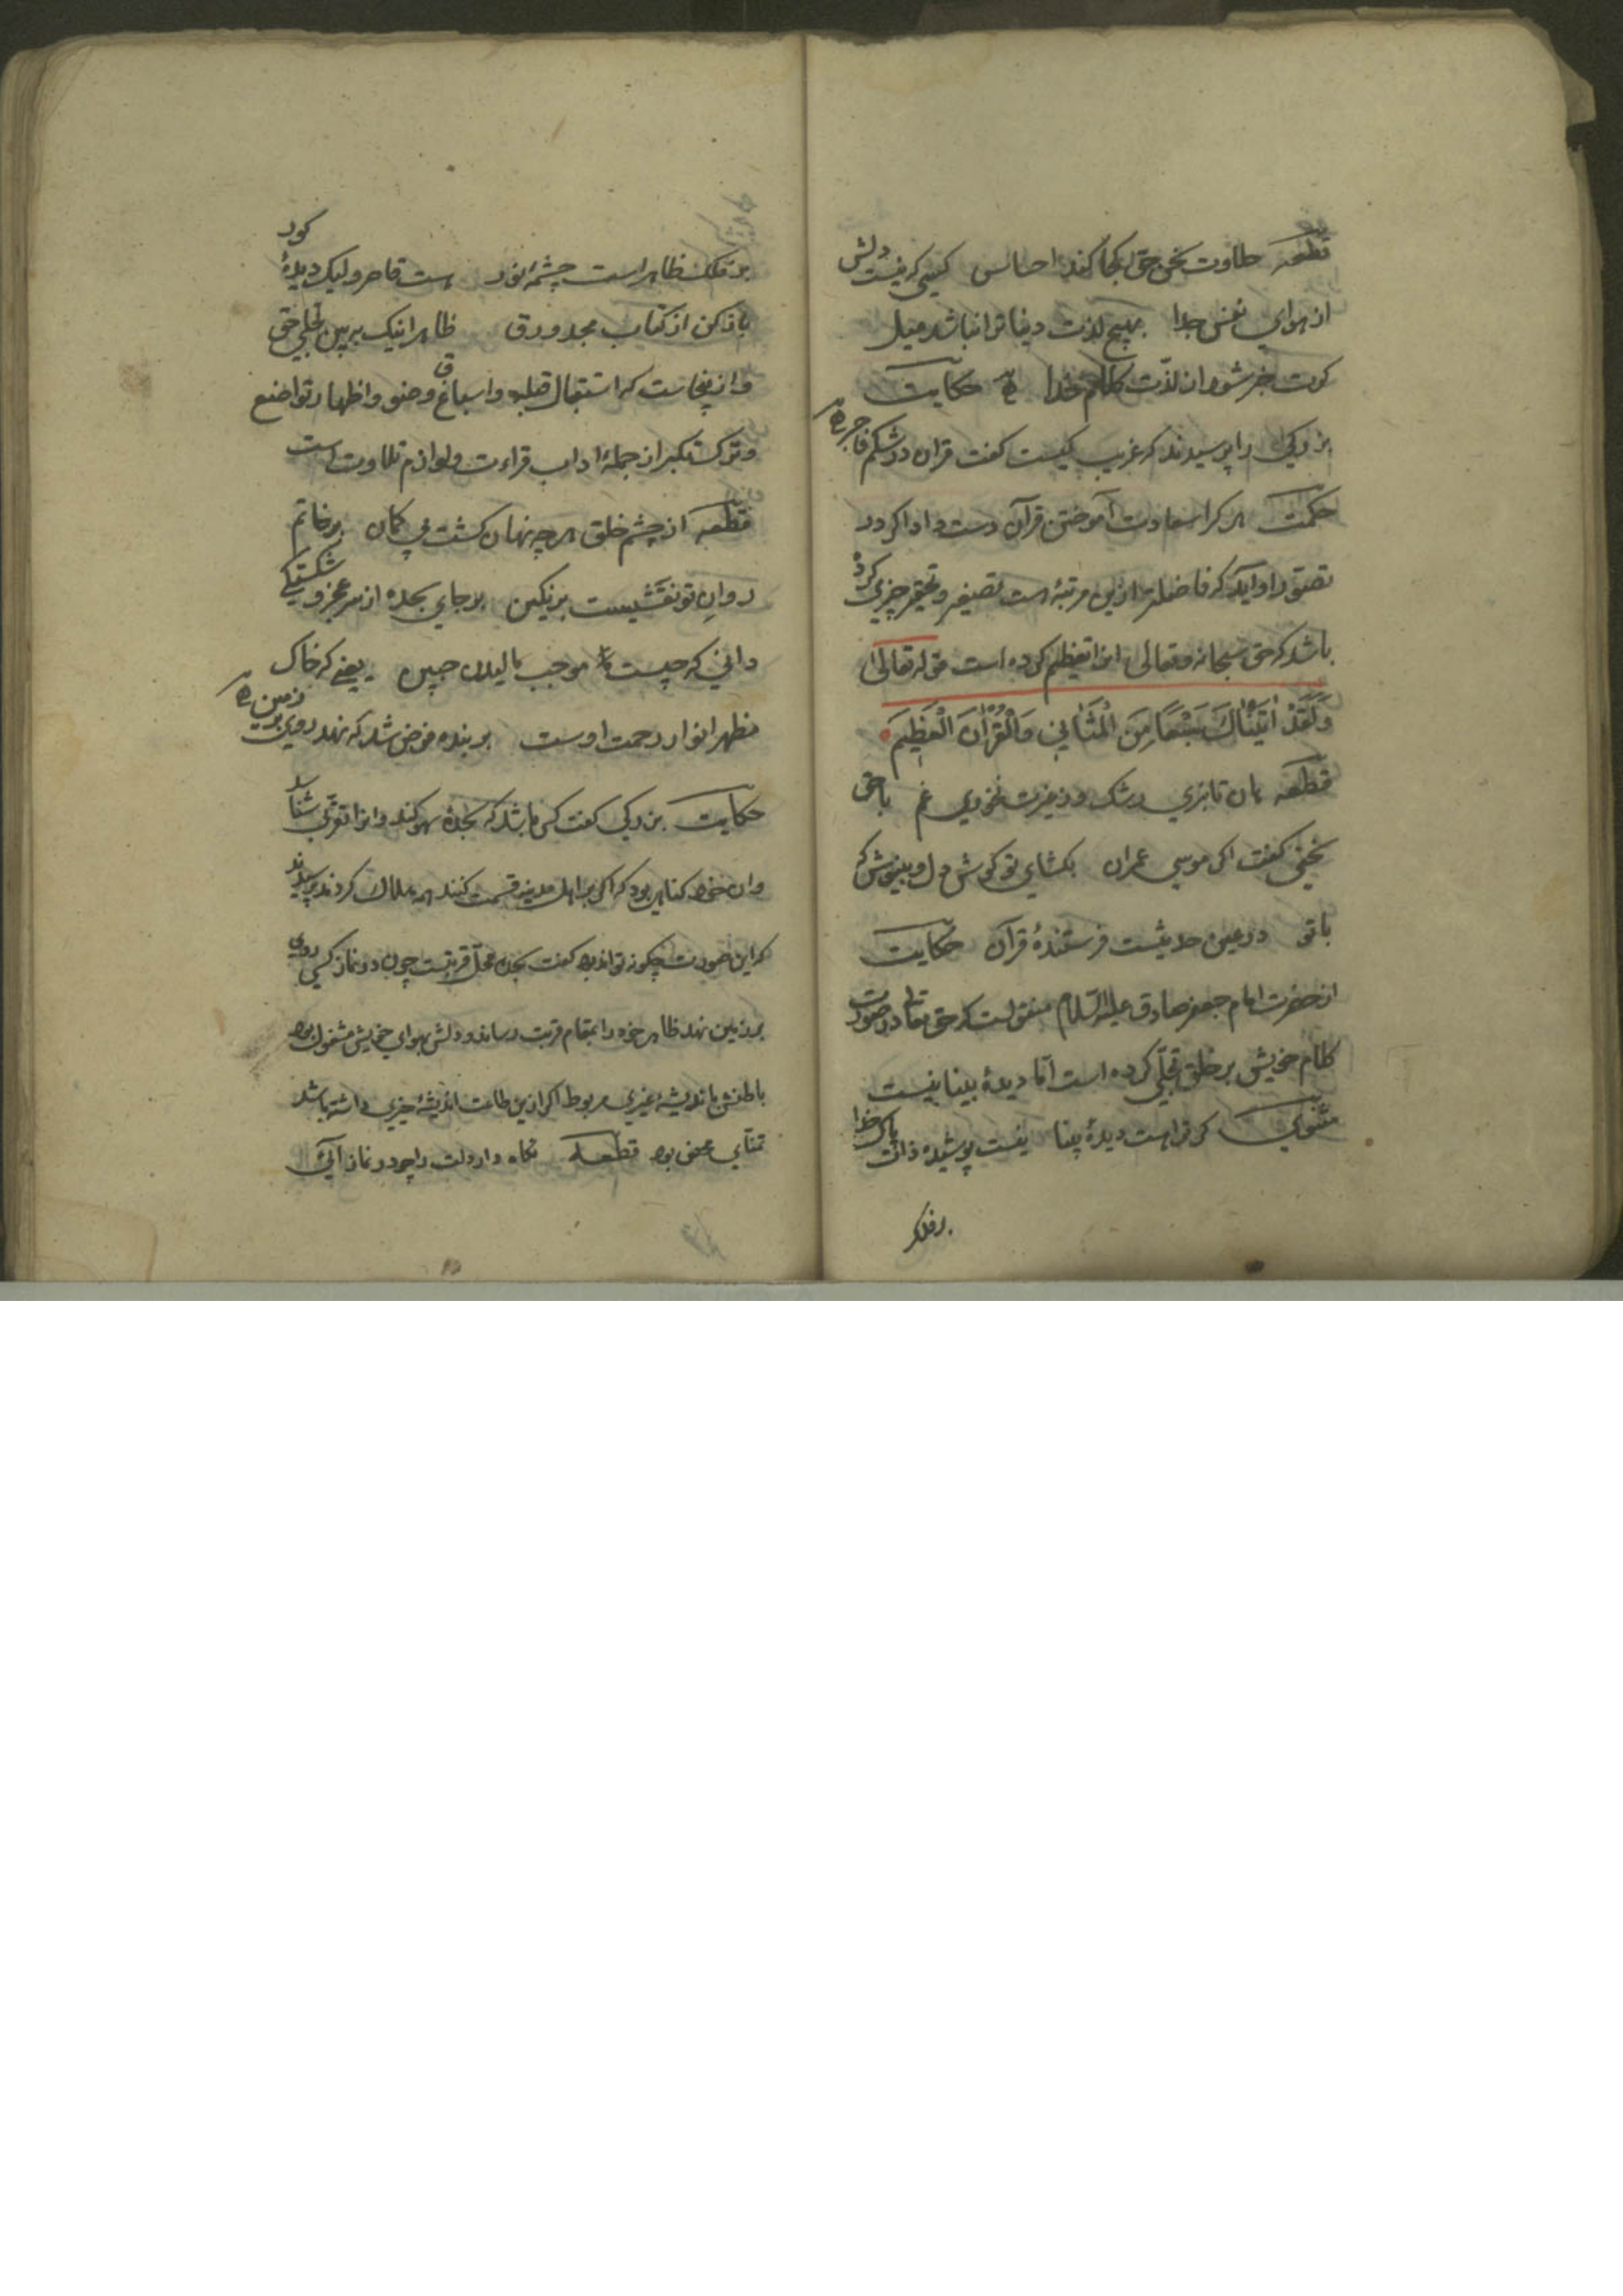 قطعه حلاوت سخن حق کجا کند احساس کسی که نیست دلش
از هوای نفس جدا بهیچ لذت دنیا ترا نباشد میل
گرت خبر شود از لذت کلام خدا حکایت
بزرگی را پرسیدند که غریب کیست گفت قرآن در شکم فاجر
حکمت هر کرا سعادت آموختن قرآن دست داد اگر در
تصور او آید که فاضلتر ازین مرتبه است تصغیر و تحقیر چیزی کرده
باشد که حق سبحانه و تعالی انرا تعظیم کرده است قوله تعالی
وَلَقَدْ اٰتَیْنَاكَ سَبْعًا مِنَ الْمَثَانِی وَالْقُرْاٰنَ الْعَظِیمَ
قطعه هان تا نبری رشک و ز غیرت نخوری غم با حق
سخنی گفت اگر موسی عمران بگشای تو گوش دل و بنیوش که
با تو در عین حدیثست فرستندهٔ قرآن حکایت
از حضرت امام جعفر صادق علیه السّلام منقولست که حق تعالی در صورت
کلام خویش بر خلق تجلّی کرده است امّا دیدهٔ بینا نیست
مثنوی گر تراست دیدهٔ بینا نیست پوشیده ذات پاک خدا
بر فلک
بر فلک ظاهر است چشمهٔ نور هست قاصر ولیک دیدهٔ کور
باز کن از کتاب مجد ورق ظاهر اینک ببین تجلی حق
و ازینجاست که استقبال قبله و اسباغ وضو و اظهار تواضع
و ترک تکبر از جملهٔ اداب قراءت و لوازم تلاوت است
قطعه از چشم خلق هر چه نهان گشت بی گمان بر خاتم
روانِ تو نقشیست بر نگین بر جای سجده از سر عجز و شکستگی
دانی که چیست موجب مالیدن جبین یعنی که خاک
مظهر انوار رحمت اوست بر بنده فرض شد که نهد روی بر زمین
حکایت بزرگی گفت کس باشد که سجدهٔ سهو کند و انرا تقرّب شناسد
و ان خود گناهی بود که اگر بر اهل مدینه قسمت کنند همه هلاک گردند پرسیدند
که این صورت چگونه تواند بود گفت سجده محل قربتست چون در نماز کسی روی
بر زمین نهد ظاهر خود را بمقام قربت رساند و دلش بهوای خویش مشغول بود
باطنش باندیشه غیری مربوط اگر ازین طاعت اندیشهٔ چیزی داشته باشد
تمنّای محض بود قطعه نگاه دار دلت را چو در نماز آئی